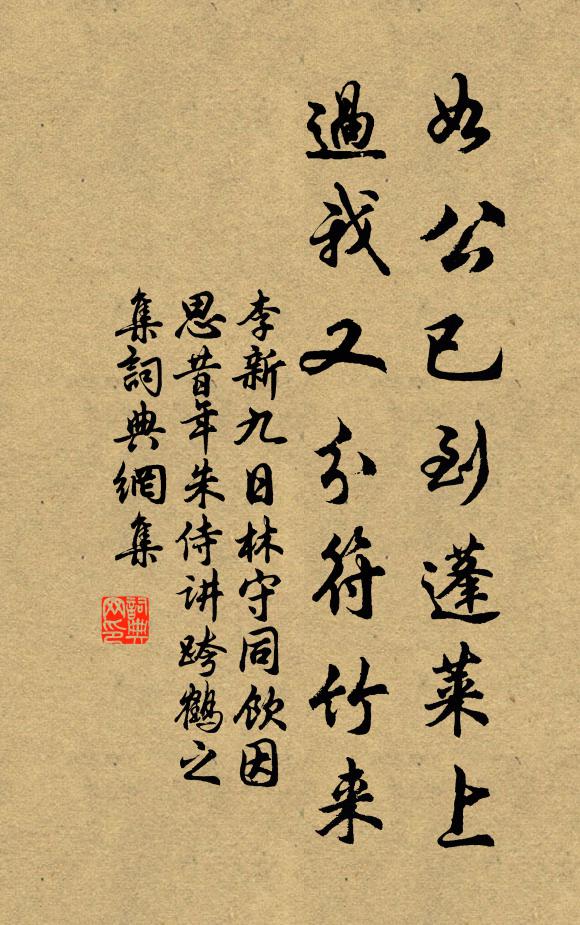 如公已到蓬莱上
過我又分符竹来
李新九日林守同飲因
思昔年朱侍讲跨鶴之
集詞典網集
詞典
网印